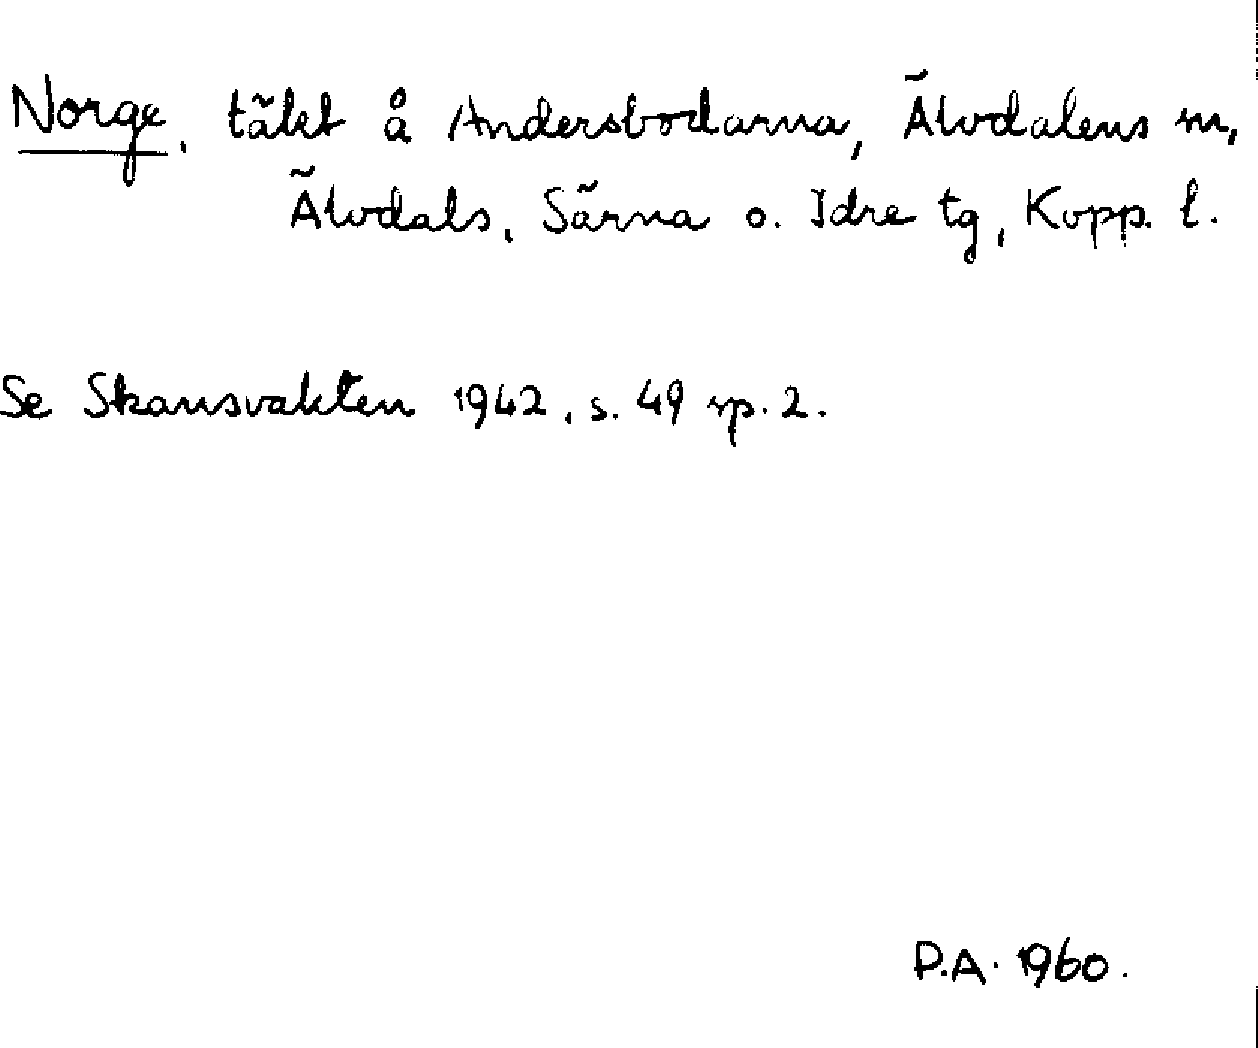 Norge, täkt å Andersbodarna, Älvdalens sn,
Älvdals, Särna o. Idre tg, Kopp. l.
Se Skansvakten 1942, s. 49 sp. 2.
P.A. 1960.